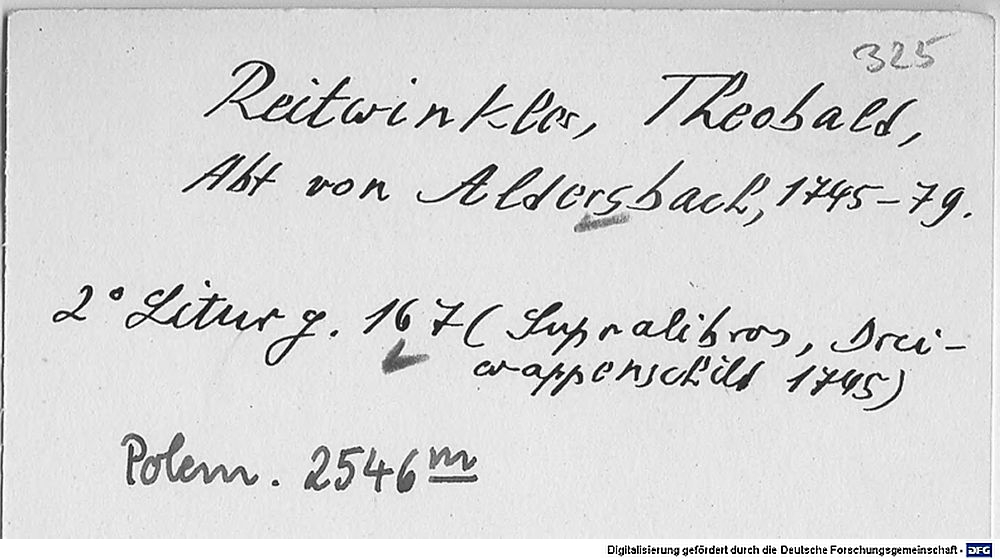 325
Reitwinkler, Theobald,
Abt von Aldersbach, 1745-79.
2° Liturg. 167 (Supralibros, Drei-
wappenschild 1745)
Polem. 2546 m
Digitalisierung gefördert durch die Deutsche Forschungsgemeinschaft - DFG